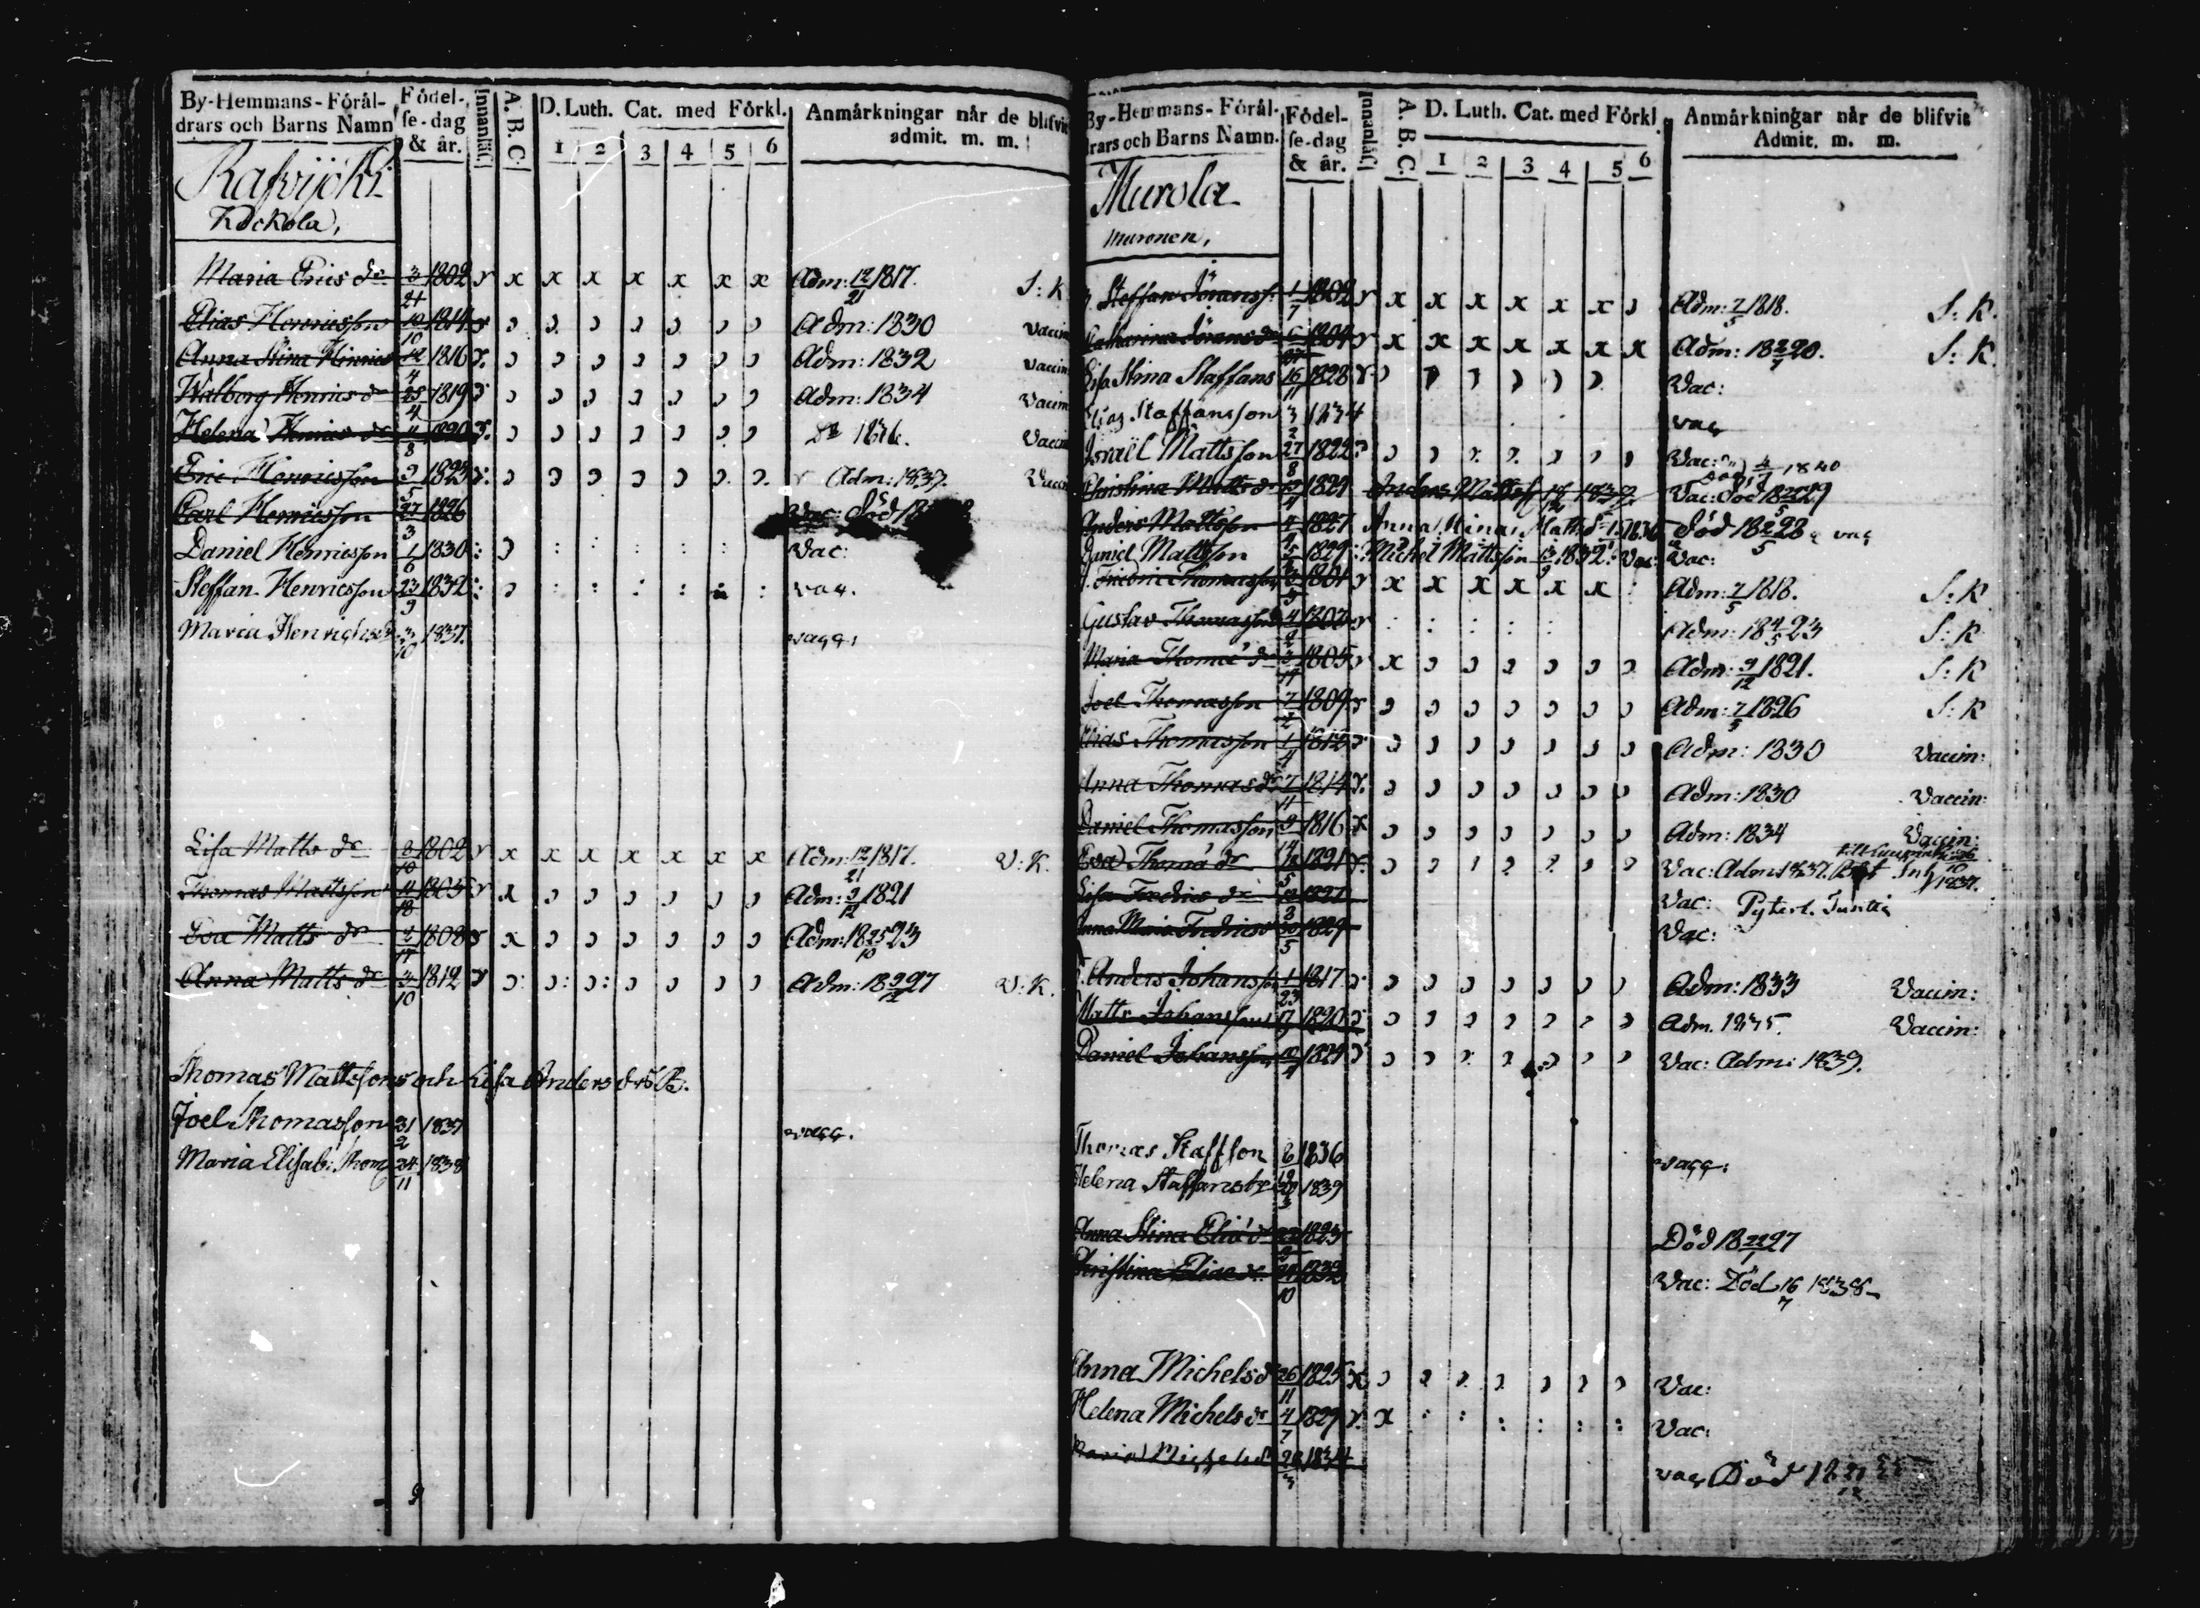 By-Hemmans-Föräl-
drars och Barns Namn
Födel-
se-dag
& år.
Innanläs.
A. B. C.
D. Luth. Cat. med Förkl.
1 2 3 4 5 6
Anmärkningar når de blifvit
admit. m. m.
Kockola,
Maria Erics dr 3/21 1802 x x x x x x x Adm: 12/21 1817. S: K.
Elias Henricsson 10/10 1814 Adm: 1830 Vaccin
Anna Stina Hinrics 12/4 1816 Adm: 1832 Vaccin
Walborg Henrics dr 25/4 1819 Adm: 1834 Vaccin
Helena Henrics dr 11/8 1820 Vaccin
Eric Henricsson 9/5 1823 Adm: 1837.
Carl Henricsson 27/3 1826 Vac: död
Daniel Henricsson 1/6 1830 Vac:
Steffan Henricsson 23/9 1832 vac.
Maria Henrichsd 3/10 1837. vacc.
Lisa Matts dr 8/10 1802 x x x x x x x Adm: 12/21 1817. V: K.
Thomas Mattsson 11/18 1805 x Adm: 9/12 1821
Eva Matts dr 2/11 1808 x Adm: 18 25/10 23
Anna Matts dr 3/10 1812 Adm: 18 9/12 27 V: K.
Thomas Mattsons och Lisa Anders drs B.
Joel Thomasson 31/2 1837 vacc.
Maria Elisab: Thom 24/11 1838
9
By-Hemmans-Förål-
drars och Barns Namn.
Födel-
se-dag
& år.
Innanläs.
A. B. C.
D. Luth. Cat. med Förkl
1 2 3 4 5 6
Anmärkningar når de blifvit
Admit. m. m.
Murola
Muronen,
Steffan Göranss. 1/7 1802 x x x x x x Adm: 7/5 1818. S: K.
Catharina Görans dr 1804 x x x x x x x Adm: 18 2/7 20. S: K.
Lisa Stina Staffans 16/11 1828 Vac:
Elias Staffansson 3/2 1834 vac
Israël Mattsson 27/8 1822 Vac: död 4/7 1840
Christina Matts dr 1824 Anders Mattss 1837. Vac: Död 18 22/5 29
Anders Mattsson 1827 Anna Stina Mattsd 1836 Död 18 2/5 28 vac
Daniel Mattsson 1829 Michel Mattsson 13/9 1832 Vac: Vac:
Fredric Thomasson 1801 x x x x x x Adm: 7/5 1818. S: K
Gustav Thomasson 4/2 1803 Adm: 18 4/5 23 S: K
Maria Thomæ dr 3/11 1805 x Adm: 9/12 1821. S: K
Joel Thomasson 7/2 1809 Adm: 7/5 1826 S: K
Elias Thomasson 1/4 1812 Adm: 1830 Vaccin:
Anna Thomas dr 7/11 1814 Adm: 1830 Vaccin:
Daniel Thomasson 9 1816 x Adm: 1834 Vaccin:
Eva Thomæ dr 1821 Vac: Adm: 1837.
Lisa Fredrics dr 1827 Vac: Pyterl.
Anna Maria Fredrics dr 30/5 1829 Vac:
Anders Johansson 1/23 1817 Adm: 1833 Vaccin:
Matts Johansson 17 1820 Adm. 1835. Vaccin:
Daniel Johansson 1824 Vac: Adm: 1839.
Thomas Staffson 8 1836 vacc.
Helena Staffansdr 1839
Anna Stina Eliæ dr 1823 Död 18 22/1 27
Christina Eliae dr 24/10 1832 Vac: Död 16/7 1838
Anna Michels d 26/11 1825 x Vac:
Helena Michels dr 4/7 1829 x Vac:
Maria Michelsdr 28/3 1834 vac Död